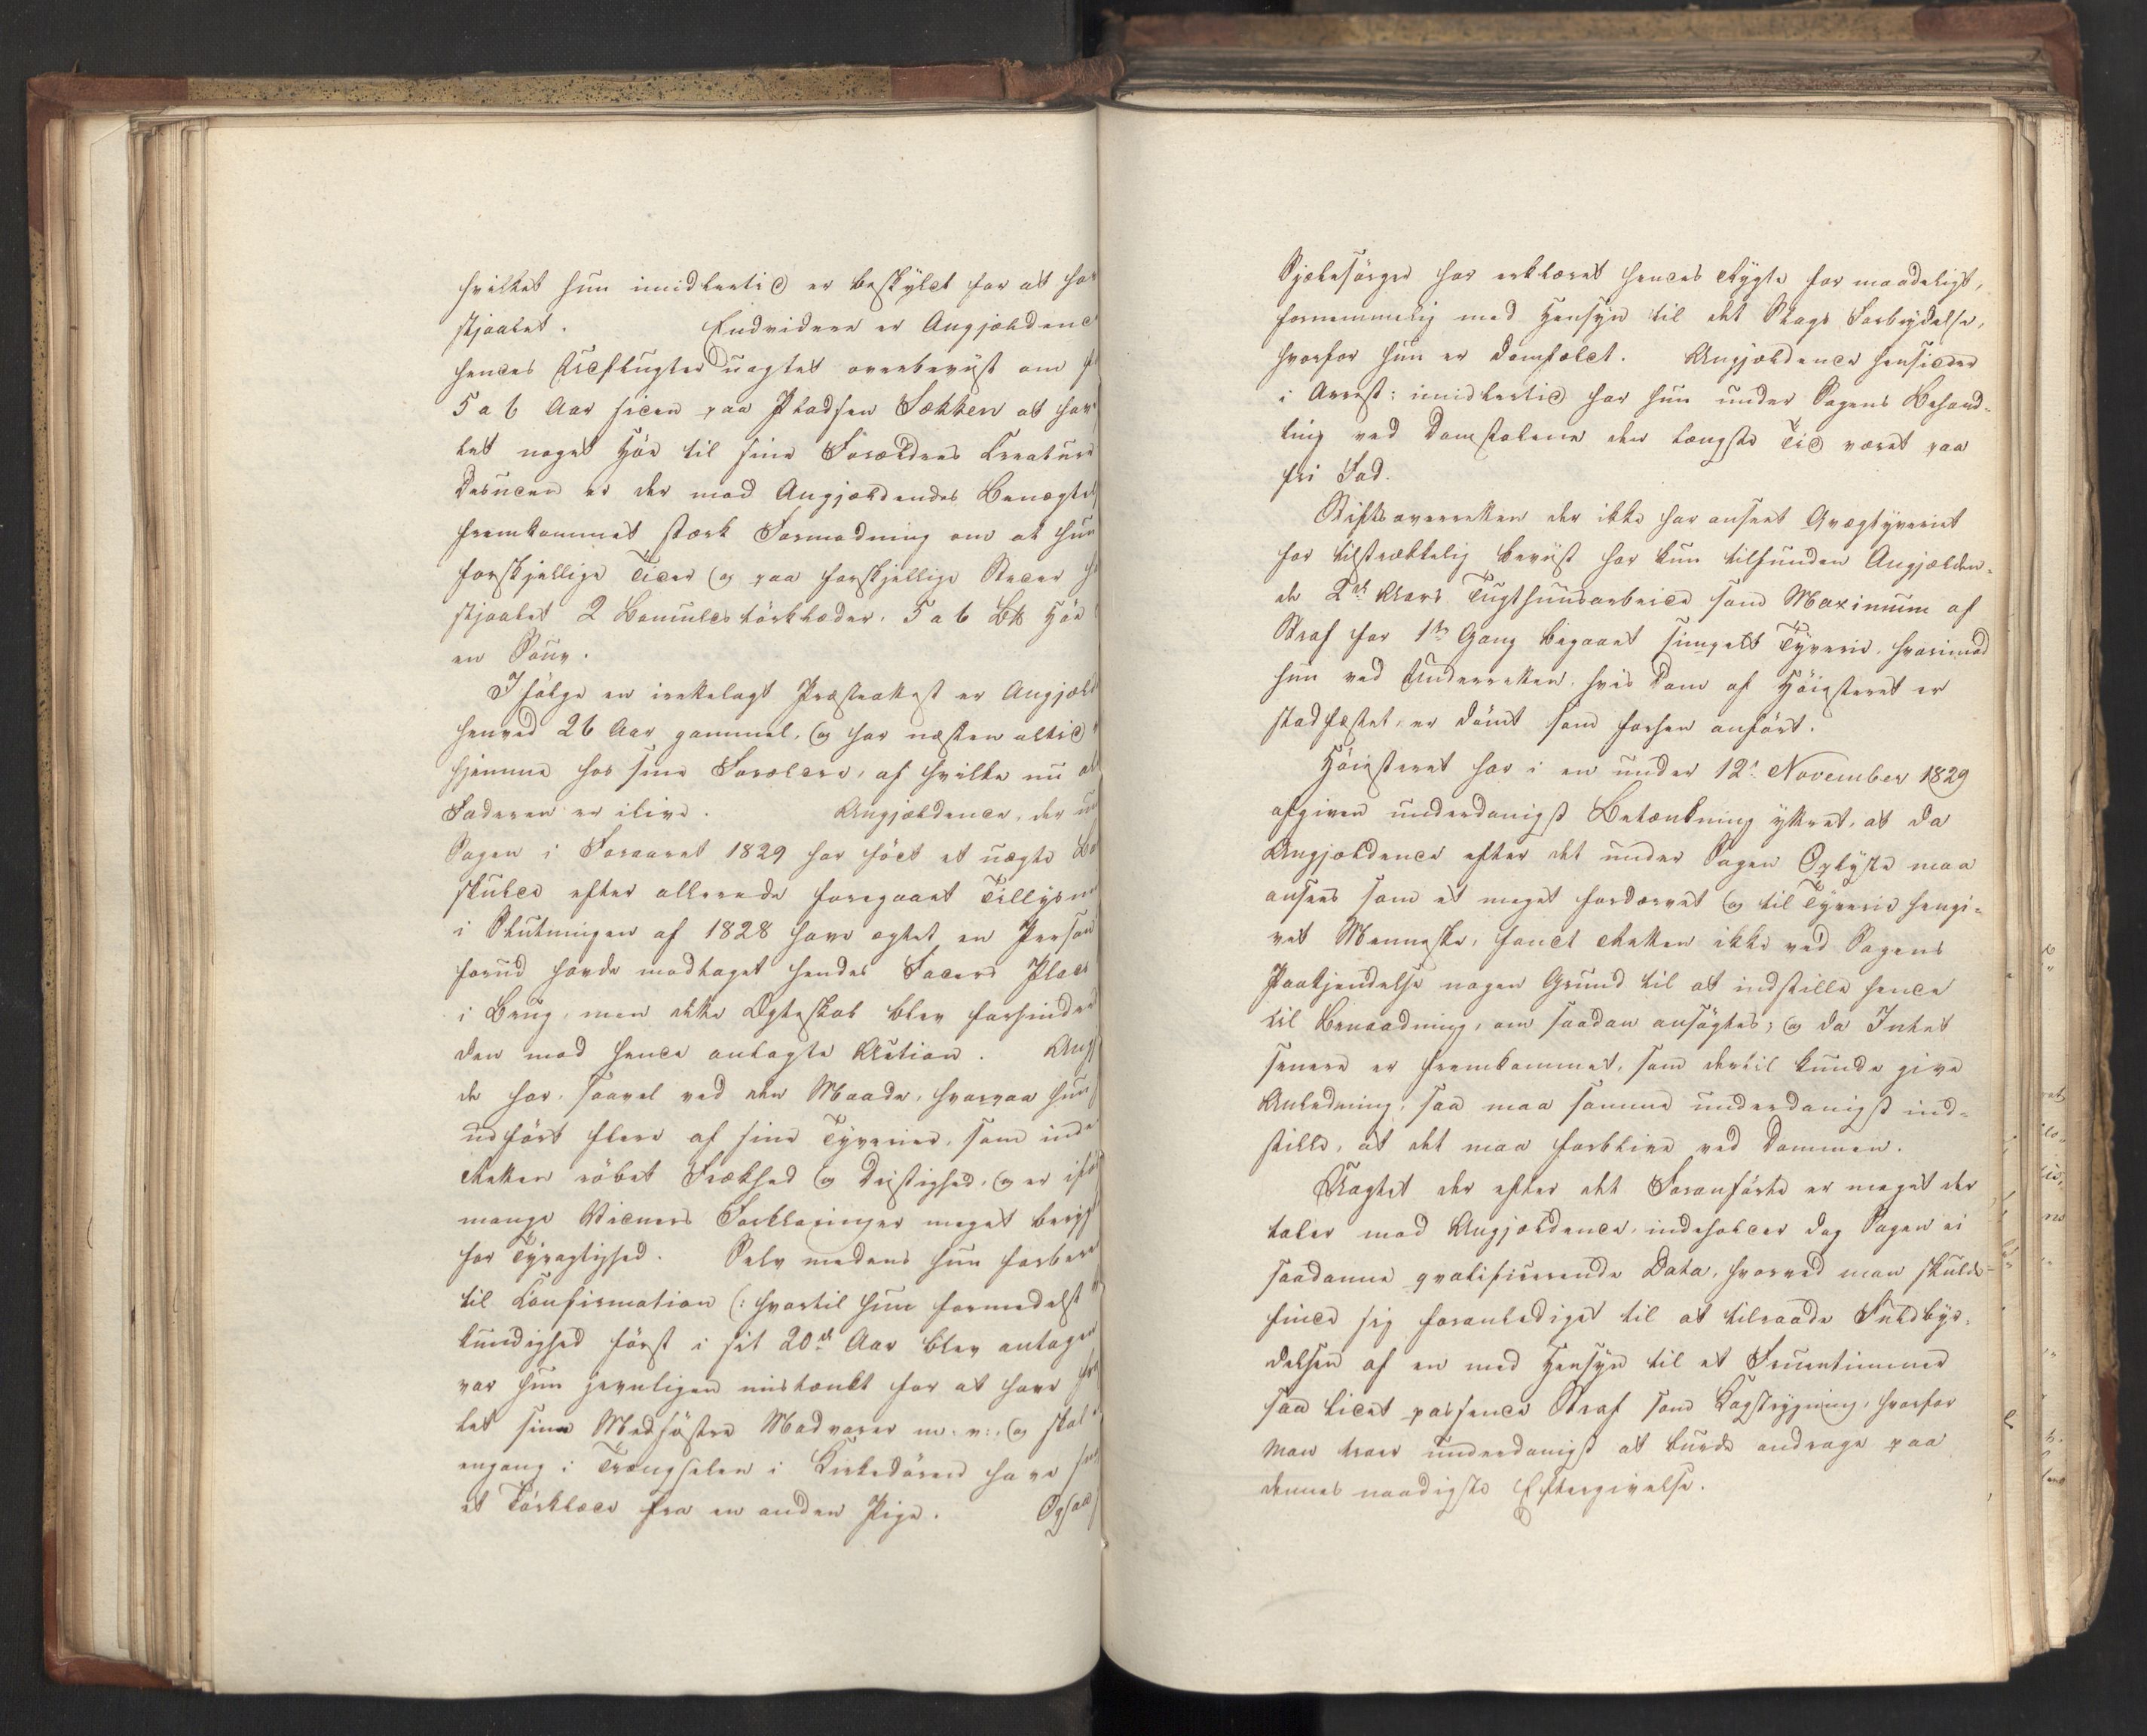 hvilket hun imidlertid er beskyldt for at ha
stjaalet. Endvidere er Angjældend
hendes Udflugter uagtet overbeviist om f
5 a 6 Aar siden paa Pladsen Sækken at hav
let noget Høe til sine Forældres Creature
Desuden er der mod Angjældendes Benægtels
fremkommet stærk Formodning om at hun
forskjellige Tider og paa forskjellige Steder h
stjaalet 2 Bomuldstørklæder, 5 a 6 L℔ Høe
en Souv.
Ifølge en irettelagt Præsteattest er Angjæld
henved 26 Aar gammel, og har næsten altid
hjemme hos sine Forældre, af hvilke nu al
Faderen er ilive. Angjældende, der un
Sagen i Foraaret 1829 har født et uægte Ba
skulde efter allerede foregaaet Tillysn
i Slutningen af 1828 have ægtet en Person
forud havde modtaget hendes Faders Plads
i Brug, men dette Ægteskab blev forhindre
den mod hende anlagte Action. Angj
de har, saavel ved den Maade, hvorpaa hun
udført flere af sine Tyverier, som inde
Retten røbet Frækhed og Dristighed, og er ifø
mange Vidners Forklaringer meget beryg
for Tyvagtighed. Selv medens hun forbere
til Confirmation (: hvortil hun formedelst
kundighed først i sit 20de Aar blev antagen
var hun jevnligen mistænkt for at have fra
let sine Medsøstre Madvarer m: v:, og skal
engang i Trængselen i Kirkedøren have
et Tørklæde fra en anden Pige. Ogsaa
Sjælesørger har erklæret hendes Rygte for maadeligt,
fornemmelig med Hensyn til det Slags Forbrydelse,
hvorfor hun er domfældt. Angjældende hensidder
i Arrest; imidlertid har hun under Sagens Behand-
ling ved Domstolene den længste Tid været paa
fri Fod.
Stiftsoverretten der ikke har anseet Qvægtyveriet
for tilstrækkelig beviist har kun tilfunden Angjælden-
de 2de Aars Tugthuusarbeide som Maximum af
Straf for 1ste Gang begaaet simpelt Tyverie, hvorimod
hun ved Underretten, hvis Dom af Høiesteret er
stadfæstet, er dømt som forhen anført.
Høiesteret har i en under 12te November 1829
afgiven underdanigst Betænkning yttret, at da
Angjældende efter det under Sagen Oplyste maa
ansees som et meget fordærvet og til Tyverie hengi-
vet Menneske, fandt Retten ikke ved Sagens
Paakjendelse nogen Grund til at indstille hende
til Benaadning, om saadan ansøgtes; og da Intet
senere er fremkommet, som dertil kunde give
Anledning, saa maa samme underdanigst ind-
stille, at det maa forblive ved Dommen.
Uagtet der efter det Foranførte er meget der
taler mod Angjældende, indeholder dog Sagen ei
saadanne qvalificerende Data, hvorved man skulde
finde sig foranlediget til at tilraade Fuldbyr-
delsen af en med Hensyn til et Fruentimmer
saa lidet passende Straf som Kagstrygning, hvorfor
man troer underdanigst at burde andrage paa
dennes naadigste Eftergivelse.